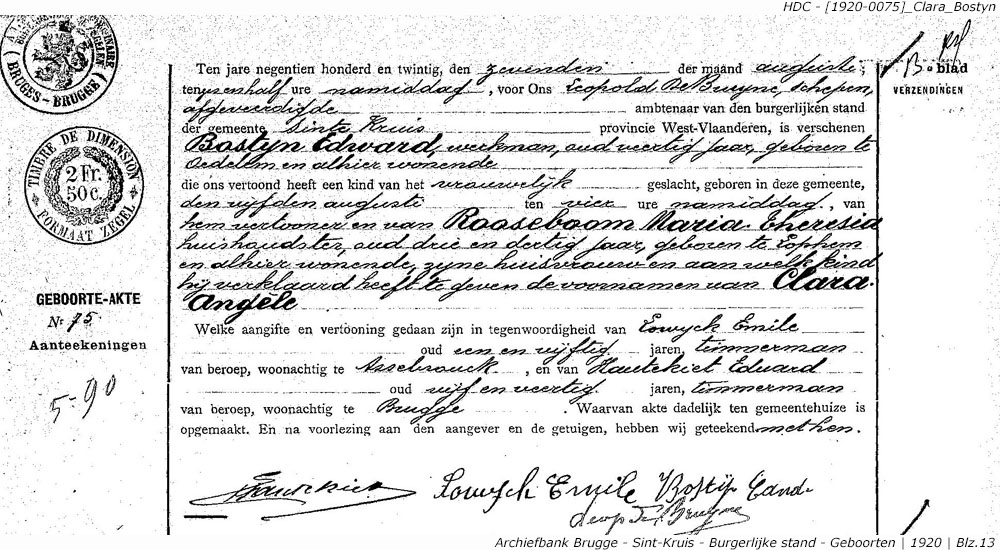 HDC - [1920-0075]_Clara_Bostyn
BRUGES-BRUGGE
TIMBRE DE DIMENSION
2 Fr.
50c.
FORMAAT ZEGEL
GEBOORTE-AKTE
Nr 75.
Aanteekeningen
5-90
13e blad
VERZENDINGEN
Ten jare negentien honderd en twintig, den zevenden der maand auguste,
ten en half ure namiddag, voor Ons Leopold De Bruyne, Schepen,
afgeveerdigde ambtenaar van den burgerlijken stand
der gemeente Sinte Kruis provincie West-Vlaanderen, is verschenen
Bostyn Edward, werkman, oud veertig jaar, geboren te
Oedelem en alhier wonende
die ons vertoond heeft een kind van het vrouwelijk geslacht, geboren in deze gemeente,
den vijfden auguste ten vier ure namiddag, van
hem vertooner en van Rooseboom Maria Theresia
huishoudster, oud drie en dertig jaar, geboren te Lophem
en alhier wonende, zyne huisvrouw en aan welk kind
hij verklaard heeft te geven de voornamen van Clara
Angèle
Welke aangifte en vertooning gedaan zijn in tegenwoordigheid van Lowyck Emile
oud een en vijftig jaren, timmerman
van beroep, woonachtig te Assebrouck, en van Hautekiet Eduard
oud vijf en veertig jaren, timmerman
van beroep, woonachtig te Brugge. Waarvan akte dadelijk ten gemeentehuize is
opgemaakt. En na voorlezing aan den aangever en de getuigen, hebben wij geteekend met hen.
Hautekiet Lowyck Emile Bostijn
Leop De Bruyne
Archiefbank Brugge - Sint-Kruis - Burgerlijke stand - Geboorten | 1920 | Blz.13